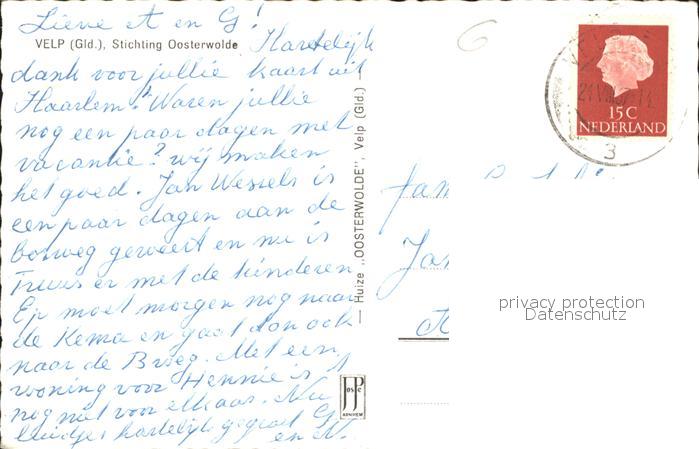 Lieve A en G!
VELP (Gld.), Stichting Oosterwolde
Hartelijk
dank voor jullie kaart uit
Haarlem! Waren jullie
nog een paar dagen met
vacantie? wij maken
het goed. Jan Wessels is
een paar dagen aan de
geweest en nu is
Truus er met de kinderen
Ep moet morgen nog naar
de Kema en gaat dan ook
naar de Met een
woning voor Hennie is 't
nog niet voor elkaar. Nu
luidjes hartelijk gegroet G
en
— Huize „OOSTERWOLDE", Velp (Gld.)
JosPé
ARNHEM
6
15C
NEDERLAND
3
Jan
privacy protection
Datenschutz